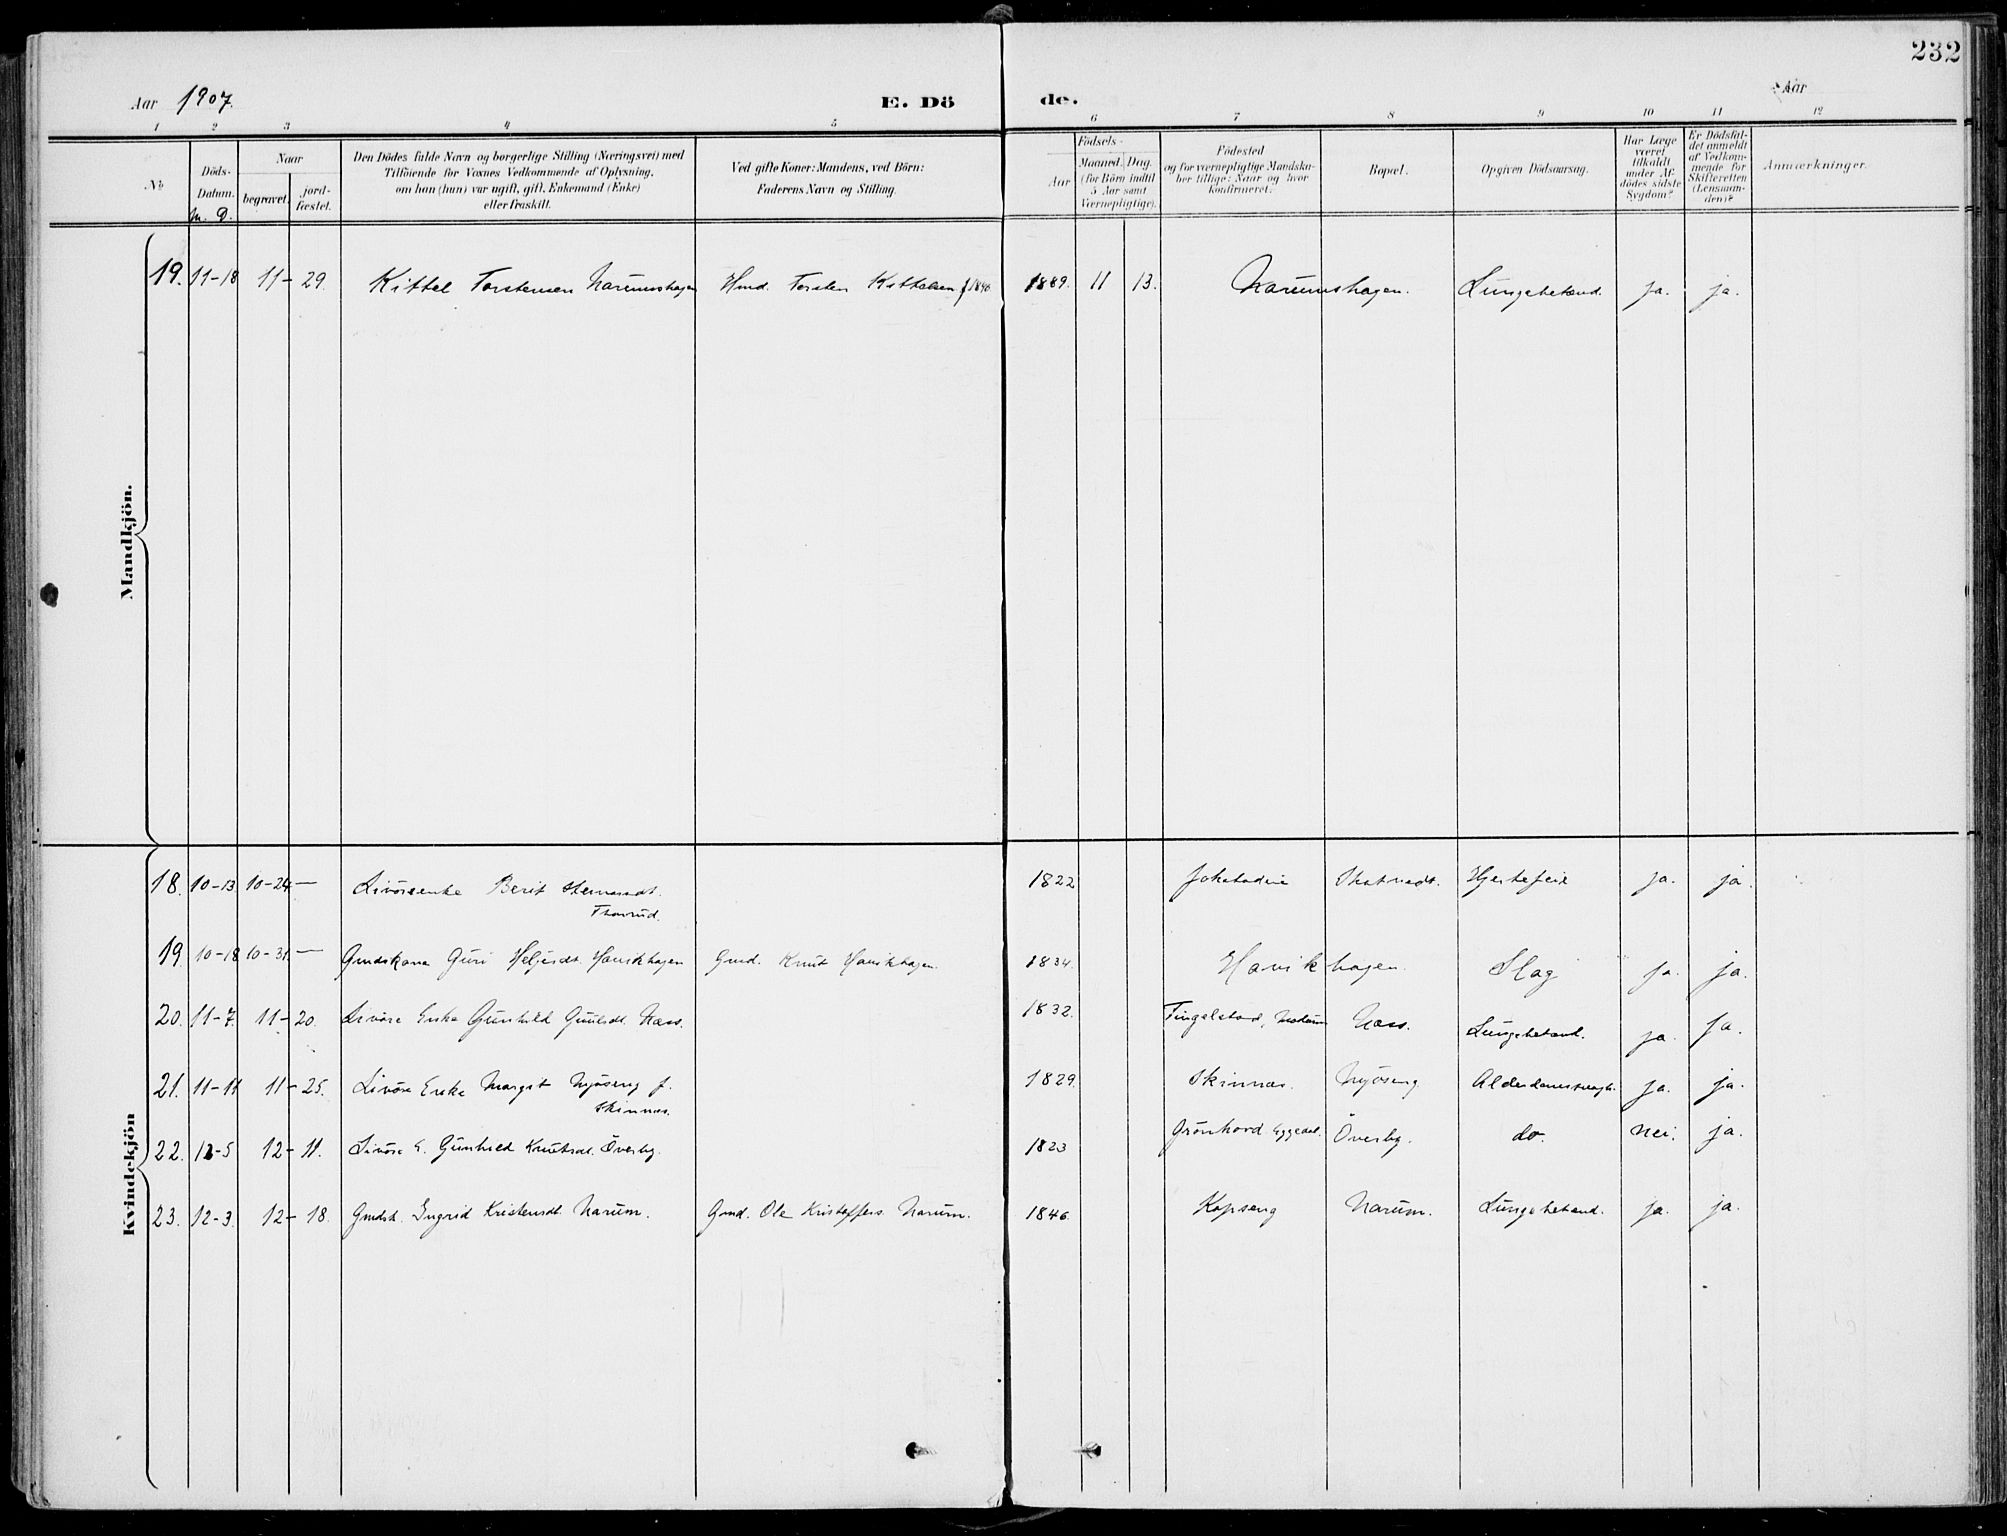 232
Aar 1907.
E. Dö
de.
Aar
1 2 3 4 5 6 7 8 9 10 11 12
No
Döds-Datum.
M. D.
Naar
begravet.
jord-fæstet.
Den Dödes fulde Navn og borgerlige Stilling (Næringsvei) med
Tilföiende for Voxnes Vedkommende af Oplysning,
om han (hun) var ugift, gift, Enkemand (Enke)
eller fraskilt.
Ved gifte Koner: Mandens, ved Börn:
Faderens Navn og Stilling.
Födsels-
Aar
Maaned. Dag.
(for Börn indtil
5 Aar samt
Værnepligtige).
Födested
og for værnepligtige Mandska-
ber tillige: Naar og hvor
konfirmeret?
Bopæl.
Opgiven Dödsaarsag.
Har Læge
været
tilkaldt
under Af-
dödes sidste
Sygdom?
Er Dödsfal-
det anmeldt
af Vedkom-
mende for
Skifteretten
(Lensman-
den)?
Anmærkninger.
Mandkjön.
19. 11-18 11-29. Kittel Torstensen Narumshagen Hmd. Torsten Kittelsen f 1846 1889. 11 13. Narumshagen. Lungebetænd. ja. ja.
Kvindekjön
18. 10-13 10-24 — Livöreenke Berit 1822 Hjertefeil ja. ja.
Thorrud.
19. 10-18 10-31. — Gmdskone Guri Helgesdt. Havikhagen Gmd. Knut Havikhagen. 1834. Havikhagen. Slag ja. ja.
20. 11-7. 11-20. Livöre Enke Gunhild Næss. 1832. Tingelstad, Modum Næss. Lungebetænd. ja. ja.
21. 11-11 11-25. Livöre Enke Margit Myöseng f. 1829. Skinnæs. Myöseng ja. ja.
Skinnæs.
22. 12-5 12-11. Livöre E. Gunhild Knutsdt. Överby. 1823 Eggedal. Överby. do. nei. ja.
23. 12-3. 12-18. Gmdsk. Ingrid Kristensdt. Narum. Gmd. Ole Kristoffers. Narum. 1846. Kopseng Narum. Lungebetænd. ja. ja.